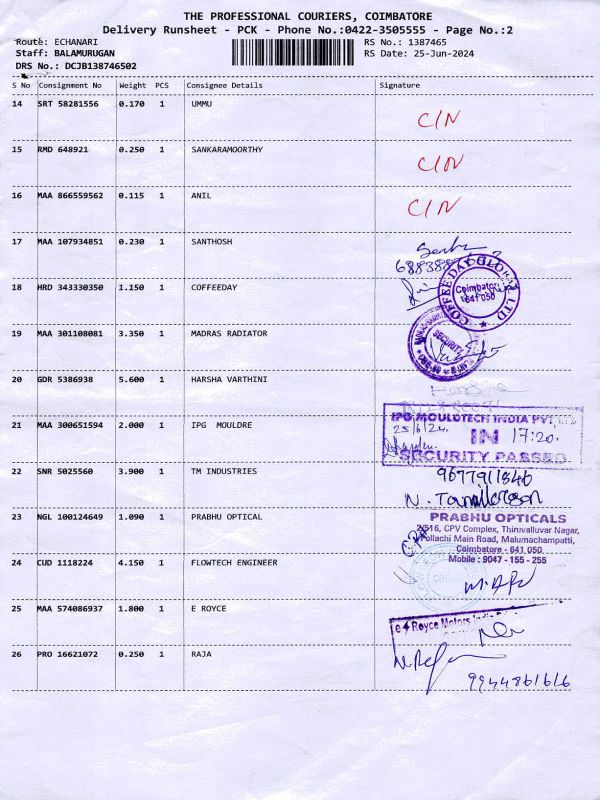 THE PROFESSIONAL COURIERS, COIMBATORE
Delivery Runsheet - PCK - Phone No.:0422-3505555 - Page No.:2
Route: ECHANARI
RS No.: 1387465
Staff: BALAMURUGAN
RS Date: 25-Jun-2024
DRS No.: DCJB138746502
S No Consignment No Weight PCS Consignee Details Signature
14 SRT 58281556 0.170 1 UMMU C/N
15 RMD 648921 0.250 1 SANKARAMOORTHY C/N
16 MAA 866559562 0.115 1 ANIL C/N
17 MAA 107934851 0.230 1 SANTHOSH
18 HRD 343330350 1.150 1 COFFEEDAY
COFFEE DAY GLOBAL LTD
Coimbatore
641 050
19 MAA 301108081 3.350 1 MADRAS RADIATOR
SECURITY
20 GDR 5386938 5.600 1 HARSHA VARTHINI
21 MAA 300651594 2.000 1 IPG MOULDRE
IPG MOULDTECH INDIA PVT LTD
25/6/24 IN 17:20.
SECURITY PASSED
22 SNR 5025560 3.900 1 TM INDUSTRIES
9677911846
23 NGL 100124649 1.090 1 PRABHU OPTICAL
PRABHU OPTICALS
2/516, CPV Complex, Thiruvalluvar Nagar,
Pollachi Main Road, Malumachampatti,
Coimbatore - 641 050
Mobile : 9047 - 155 - 255
24 CUD 1118224 4.150 1 FLOWTECH ENGINEER
25 MAA 574086937 1.800 1 E ROYCE
e Royce Motors India
26 PRO 16621072 0.250 1 RAJA
9944861616